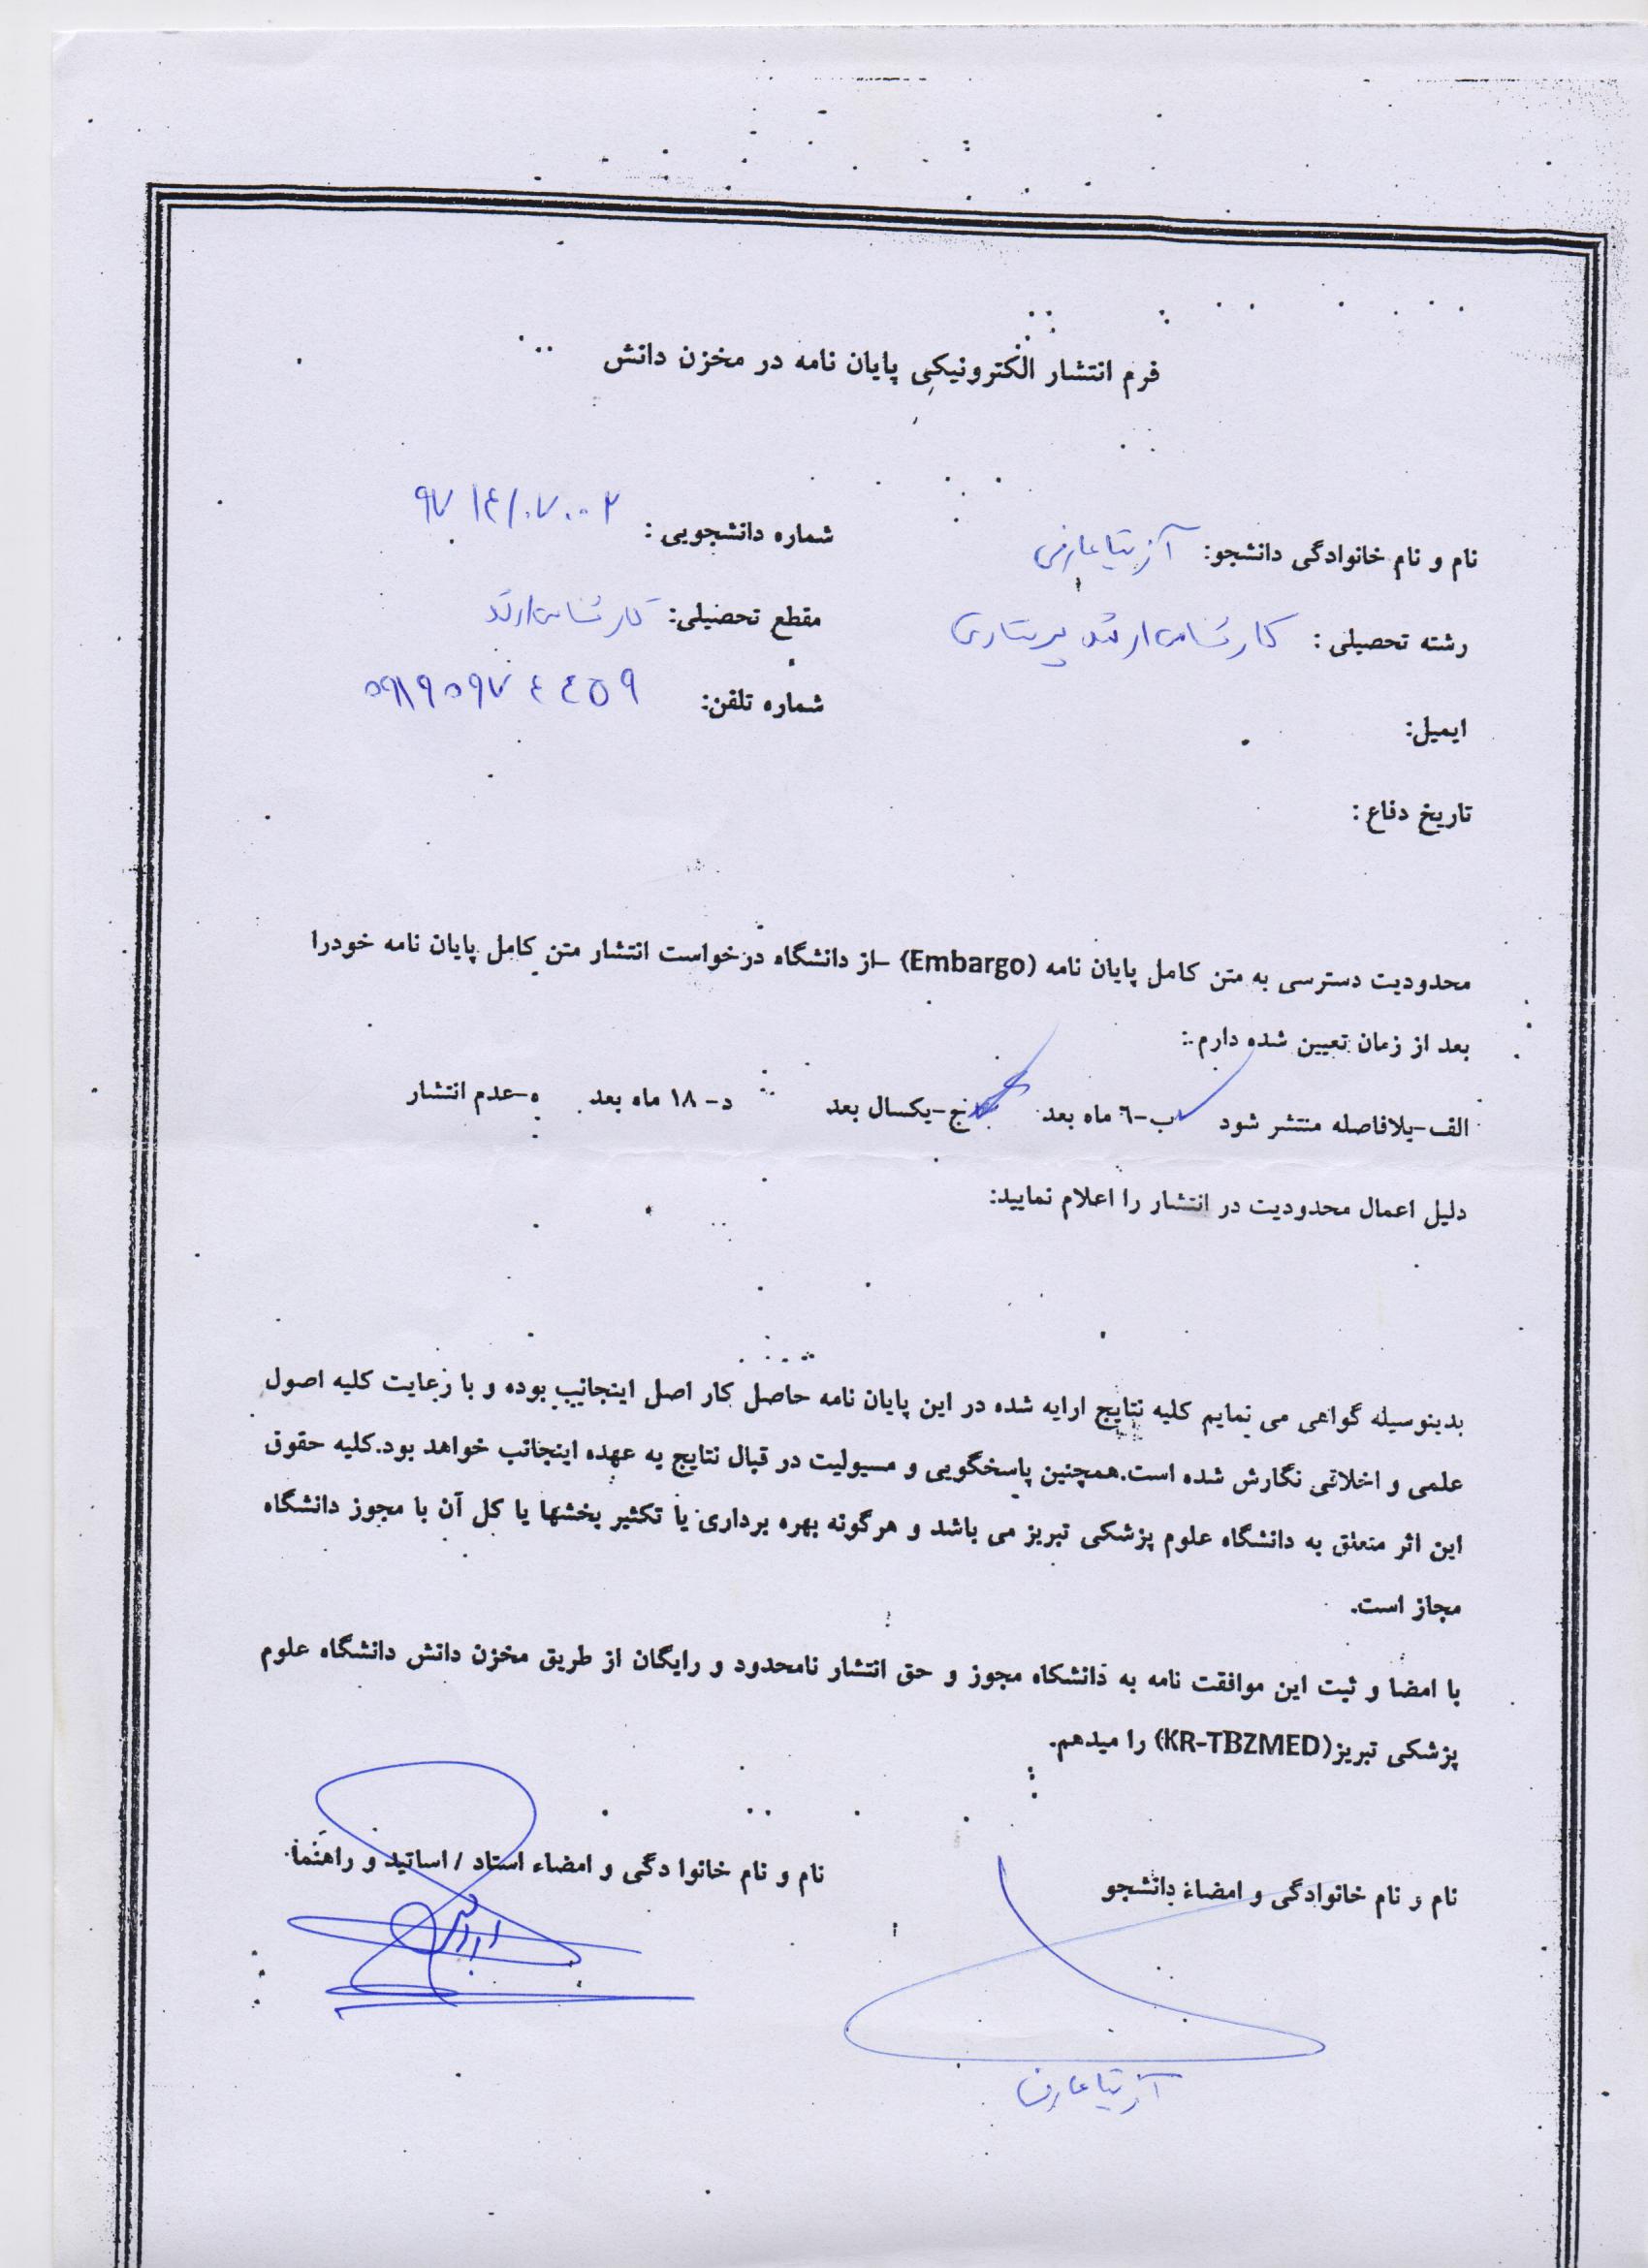 فرم انتشار الکترونیکی پایان نامه در مخزن دانش
نام و نام خانوادگی دانشجو: آزیتا عارفی شماره دانشجویی :
رشته تحصیلی : کارشناسی ارشد پرستاری مقطع تحصیلی: کارشناسی ارشد
ایمیل: شماره تلفن:
تاریخ دفاع :
محدودیت دسترسی به متن کامل پایان نامه (Embargo) –از دانشگاه درخواست انتشار متن کامل پایان نامه خودرا
بعد از زمان تعیین شده دارم.:
الف-بلافاصله منتشر شود ب-٦ ماه بعد ج-یکسال بعد د- ١٨ ماه بعد ه-عدم انتشار
دلیل اعمال محدودیت در انتشار را اعلام نمایید:
بدینوسیله گواهی می نمایم کلیه نتایج ارایه شده در این پایان نامه حاصل کار اصل اینجانب بوده و با رعایت کلیه اصول
علمی و اخلاقی نگارش شده است.همچنین پاسخگویی و مسیولیت در قبال نتایج به عهده اینجانب خواهد بود.کلیه حقوق
این اثر متعلق به دانشگاه علوم پزشکی تبریز می باشد و هرگونه بهره برداری یا تکثیر بخشها یا کل آن با مجوز دانشگاه
مجاز است.
با امضا و ثبت این موافقت نامه به دانشکاه مجوز و حق انتشار نامحدود و رایگان از طریق مخزن دانش دانشگاه علوم
پزشکی تبریز(KR-TBZMED) را میدهم.
نام و نام خانوادگی و امضاء دانشجو نام و نام خانوا دگی و امضاء استاد / اساتید و راهنما
آزیتا عارفی